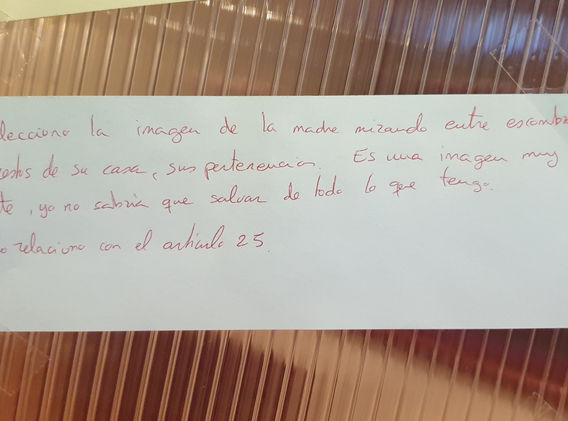 lecciono la imagen de la madre mirando entre escombr
restos de su casa, sus pertenencias. Es una imagen muy
te, yo no sabría que salvar de todo lo que tengo.
o relaciono con el artículo 25.